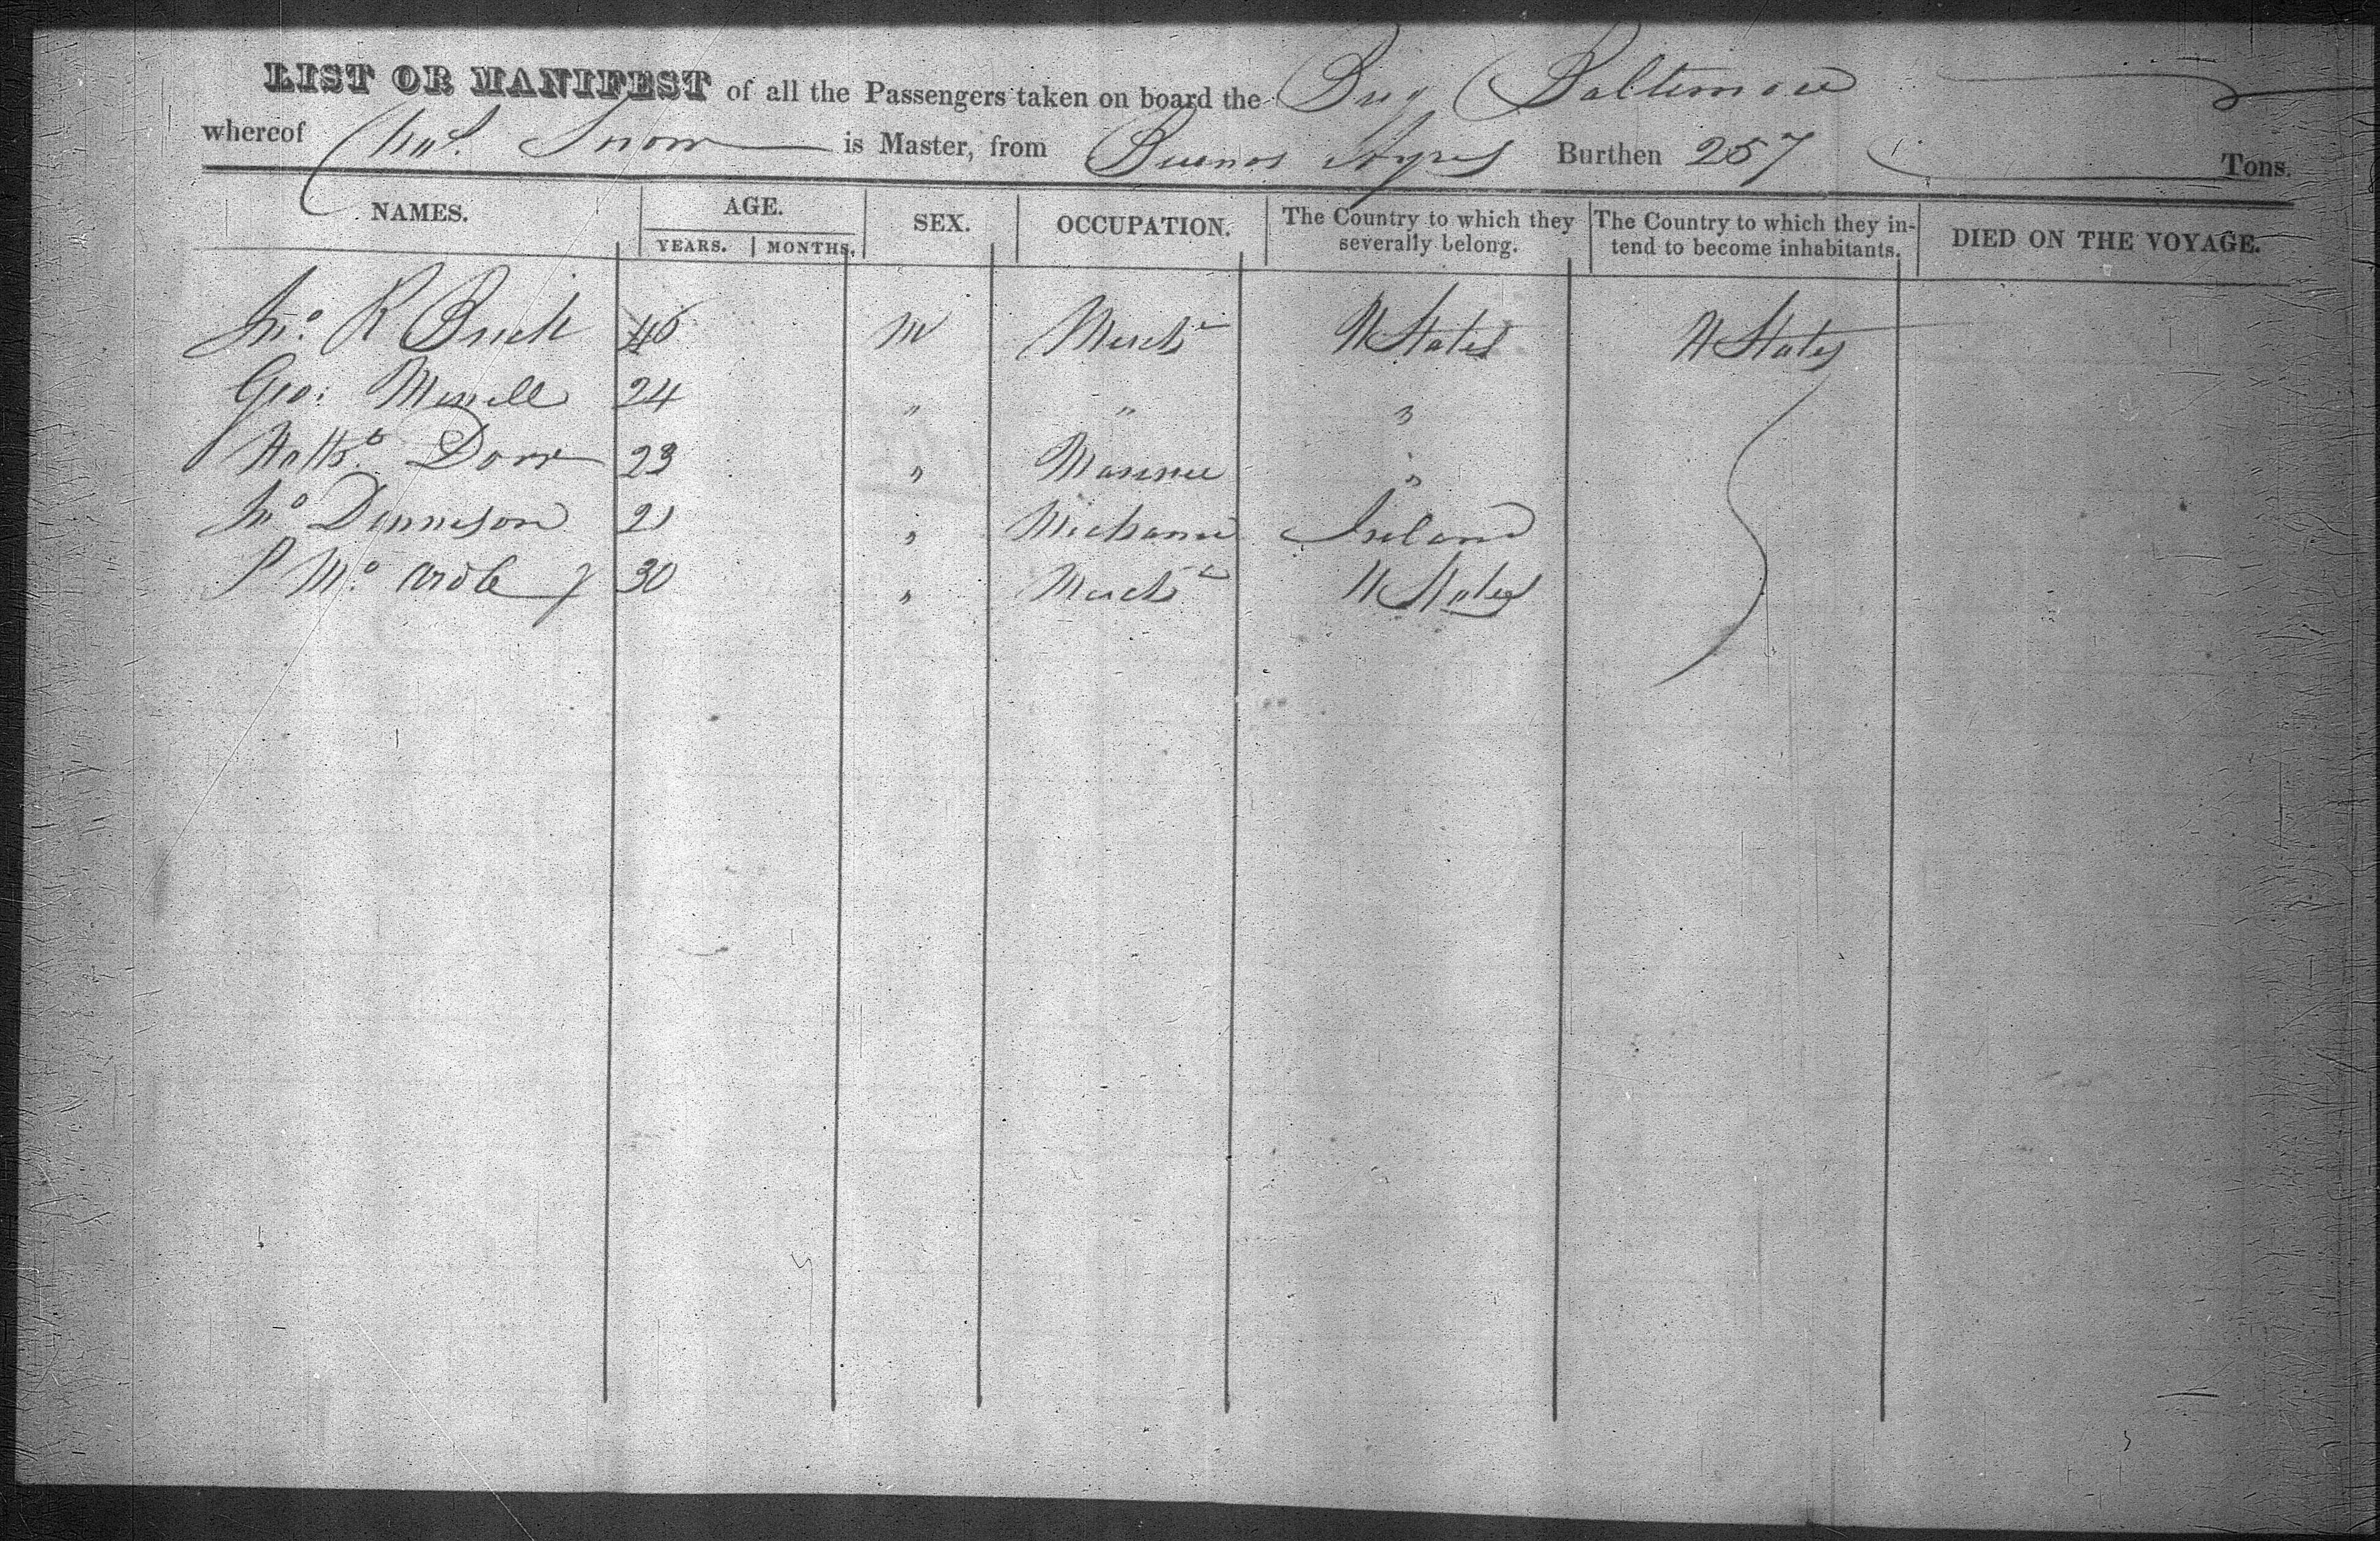 LIST OR MANIFEST of all the Passengers taken on board the Brig Baltimore
whereof Chas. Snow is Master, from Buenos Ayres Burthen 257 Tons.
NAMES. AGE. SEX. OCCUPATION. The Country to which they severally belong. The Country to which they intend to become inhabitants. DIED ON THE VOYAGE.
YEARS. MONTHS.
Jno. R 40 M Mercht U States U States
Geo. 24 " " "
Dorr 23 " "
Jno Dennison 21 " Mechanic Ireland
P 30 " Mercht U States